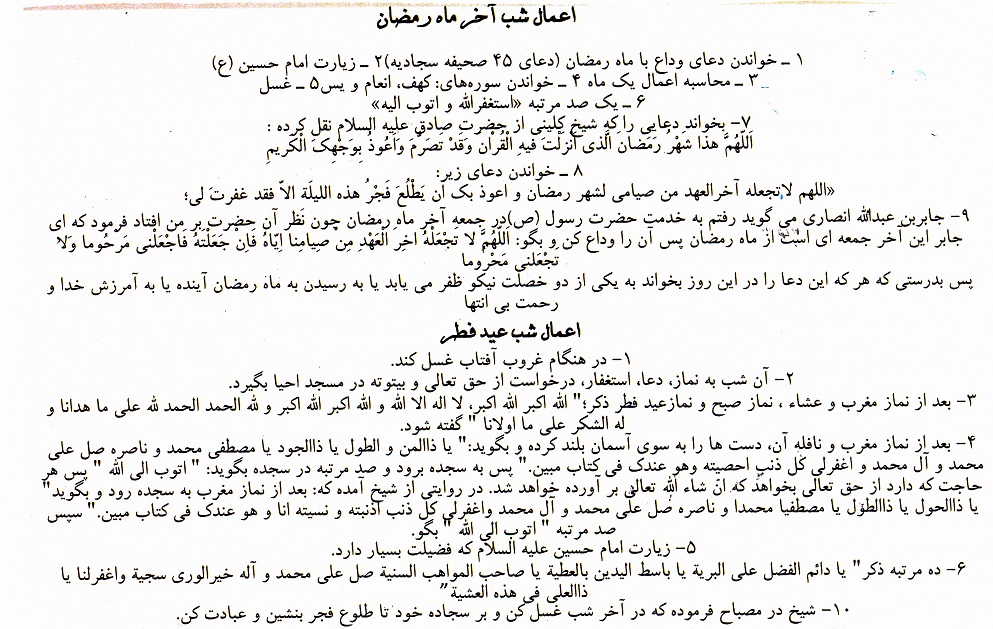 اعمال شب آخر ماه رمضان
۱ ـ خواندن دعای وداع با ماه رمضان (دعای ۴۵ صحیفه سجادیه)۲ ـ زیارت امام حسین (ع)
۳ ـ محاسبه اعمال یک ماه ۴ ـ خواندن سوره‌های: کهف، انعام و یس۵ ـ غسل
۶ ـ یک صد مرتبه «استغفرالله و اتوب الیه»
۷- بخواند دعایی را که شیخ کلینی از حضرت صادق علیه السلام نقل کرده :
اَللّهُمَّ هذا شَهْرُ رَمَضانَ الَّذی اَنْزَلْتَ فیهِ الْقُرْانَ وَقَدْ تَصَرَّمَ وَاَعُوذُ بِوَجْهِکَ الْکَریمِ
۸ ـ خواندن دعای زیر:
«اللهم لاتجعله آخرالعهد من صیامی لشهر رمضان و اعوذ بک ان یَطْلُعَ فَجْرُ هذه اللیلَة الاّ فقد غفرتَ لی؛
۹- جابربن عبدالله انصاری می گوید رفتم به خدمت حضرت رسول (ص)در جمعه آخر ماه رمضان چون نظر آن حضرت بر من افتاد فرمود که ای
جابر این آخر جمعه ای است از ماه رمضان پس آن را وداع کن و بگو: اَللّهُمَّ لا تَجْعَلْهُ اخِرَ الْعَهْدِ مِنْ صِیامِنا اِیّاهُ فَاِنْ جَعَلْتَهُ فَاجْعَلْنی مَرْحُوما وَلا
تَجْعَلنی مَحْروما
پس بدرستی که هر که این دعا را در این روز بخواند به یکی از دو خصلت نیکو ظفر می یابد یا به رسیدن به ماه رمضان آینده یا به آمرزش خدا و
رحمت بی انتها
اعمال شب عید فطر
۱- در هنگام غروب آفتاب غسل کند.
۲- آن شب به نماز، دعا، استغفار، درخواست از حق تعالی و بیتوته در مسجد احیا بگیرد.
۳- بعد از نماز مغرب و عشاء ، نماز صبح و نمازعید فطر ذکر؛" الله اکبر الله اکبر، لا اله الا الله و الله اکبر الله اکبر و لله الحمد الحمد لله علی ما هدانا و
له الشکر علی ما اولانا " گفته شود.
۴- بعد از نماز مغرب و نافله آن، دست ها را به سوی آسمان بلند کرده و بگوید:" یا ذاالمن و الطول یا ذاالجود یا مصطفی محمد و ناصره صل علی
محمد و آل محمد و اغفرلی کل ذنب احصیته وهو عندک فی کتاب مبین." پس به سجده برود و صد مرتبه در سجده بگوید: " اتوب الی الله " پس هر
حاجت که دارد از حق تعالی بخواهد که انّ شاء الله تعالی بر آورده خواهد شد. در روایتی از شیخ آمده که: بعد از نماز مغرب به سجده رود و بگوید"
یا ذاالحول یا ذاالطوّل یا مصطفیا محمدا و ناصره صل علی محمد و آل محمد واغفرلی کل ذنب اذنبته و نسیته انا و هو عندک فی کتاب مبین." سپس
صد مرتبه " اتوب الی الله " بگو.
۵- زیارت امام حسین علیه السلام که فضیلت بسیار دارد.
۶- ده مرتبه ذکر" یا دائم الفضل علی البریة یا باسط الیدین بالعطیة یا صاحب المواهب السنیة صل علی محمد و آله خیرالوری سجیة واغفرلنا یا
ذاالعلی فی هذه العشیة"
۱۰- شیخ در مصباح فرموده که در آخر شب غسل کن و بر سجاده خود تا طلوع فجر بنشین و عبادت کن.